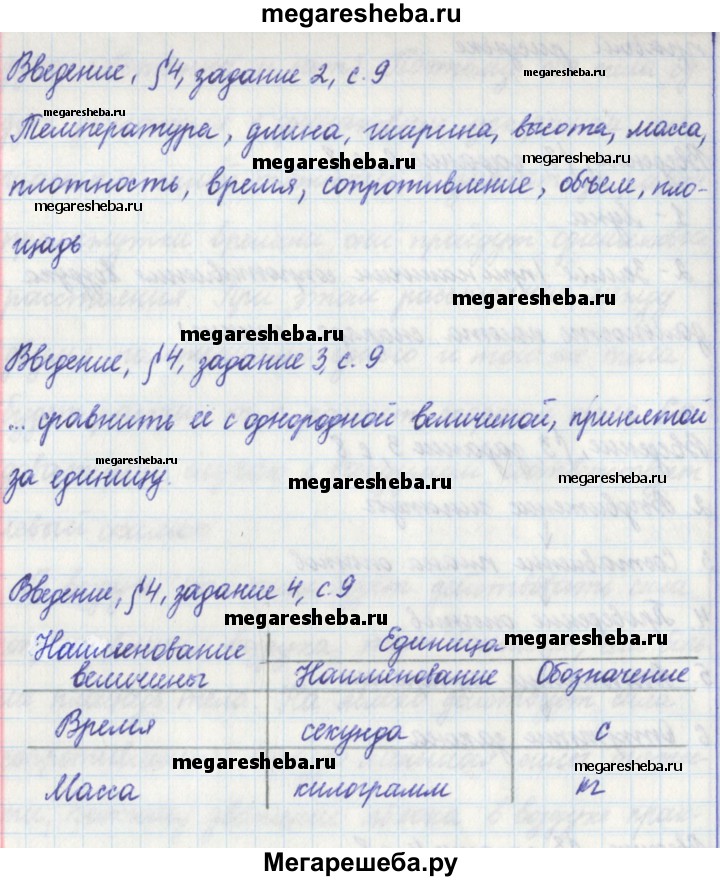 megaresheba.ru
Введение, §4, задание 2, с. 9
megaresheba.ru
megaresheba.ru
Температура, длина, ширина, высота, масса,
megaresheba.ru
плотность, время, сопротивление, объем, пло-
megaresheba.ru
megaresheba.ru
щадь
megaresheba.ru
megaresheba.ru
Введение, §4, задание 3, с. 9
... сравнить ее с однородной величиной, принятой
megaresheba.ru
за единицу.
megaresheba.ru
megaresheba.ru
Введение, §4, задание 4, с. 9
megaresheba.ru
Наименование величины Единица
megaresheba.ru
Наименование Обозначение
Время секунда с
megaresheba.ru
megaresheba.ru
Масса килограмм кг
Мегарешеба.ру